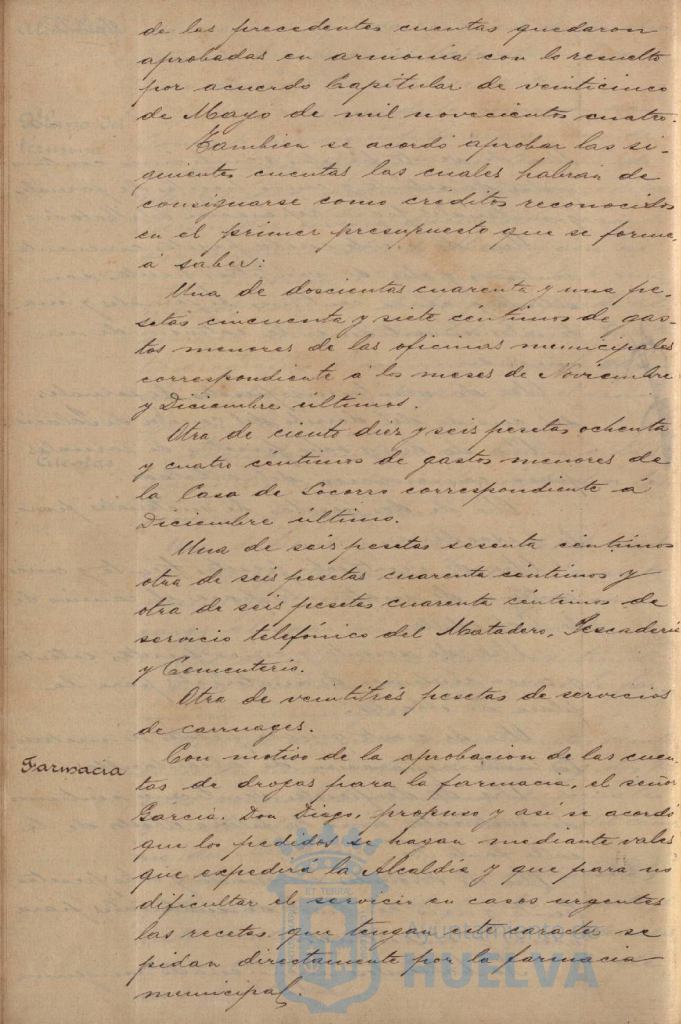 de las precedentes cuentas quedaron
aprobadas en armonia con lo resuelto
por acuerdo Capitular de veinticinco
de Mayo de mil novecientos cuatro.
Tambien se acordó aprobar las si-
guientes cuentas las cuales habrán de
consignarse como créditos reconocidos
en el primer presupuesto que se forme,
á saber:
Una de doscientas cuarenta y una pe-
setas cincuenta y siete céntimos de gas-
tos menores de las oficinas municipales
correspondiente á los meses de Noviembre
y Diciembre últimos.
Otra de ciento diez y seis pesetas ochenta
y cuatro céntimos de gastos menores de
la Casa de Socorro correspondiente á
Diciembre último.
Una de seis pesetas sesenta céntimos
otra de seis pesetas cuarenta céntimos y
otra de seis pesetas cuarenta céntimos de
servicio telefónico del Matadero, Pescadería
y Cementerio.
Otra de veintitrés pesetas de servicios
de carruages.
Farmacia
Con motivo de la aprobacion de las cuen-
tas de drogas para la farmacia, el señor
Garcia, Don Diego, propuso y así se acordó
que los pedidos se hagan mediante vales
que expedirá la Alcaldia y que para no
dificultar el servicio en casos urgentes
las recetas que tengan este caracter se
pidan directamente por la farmacia
municipal.
ET TERRAE
HUELVA